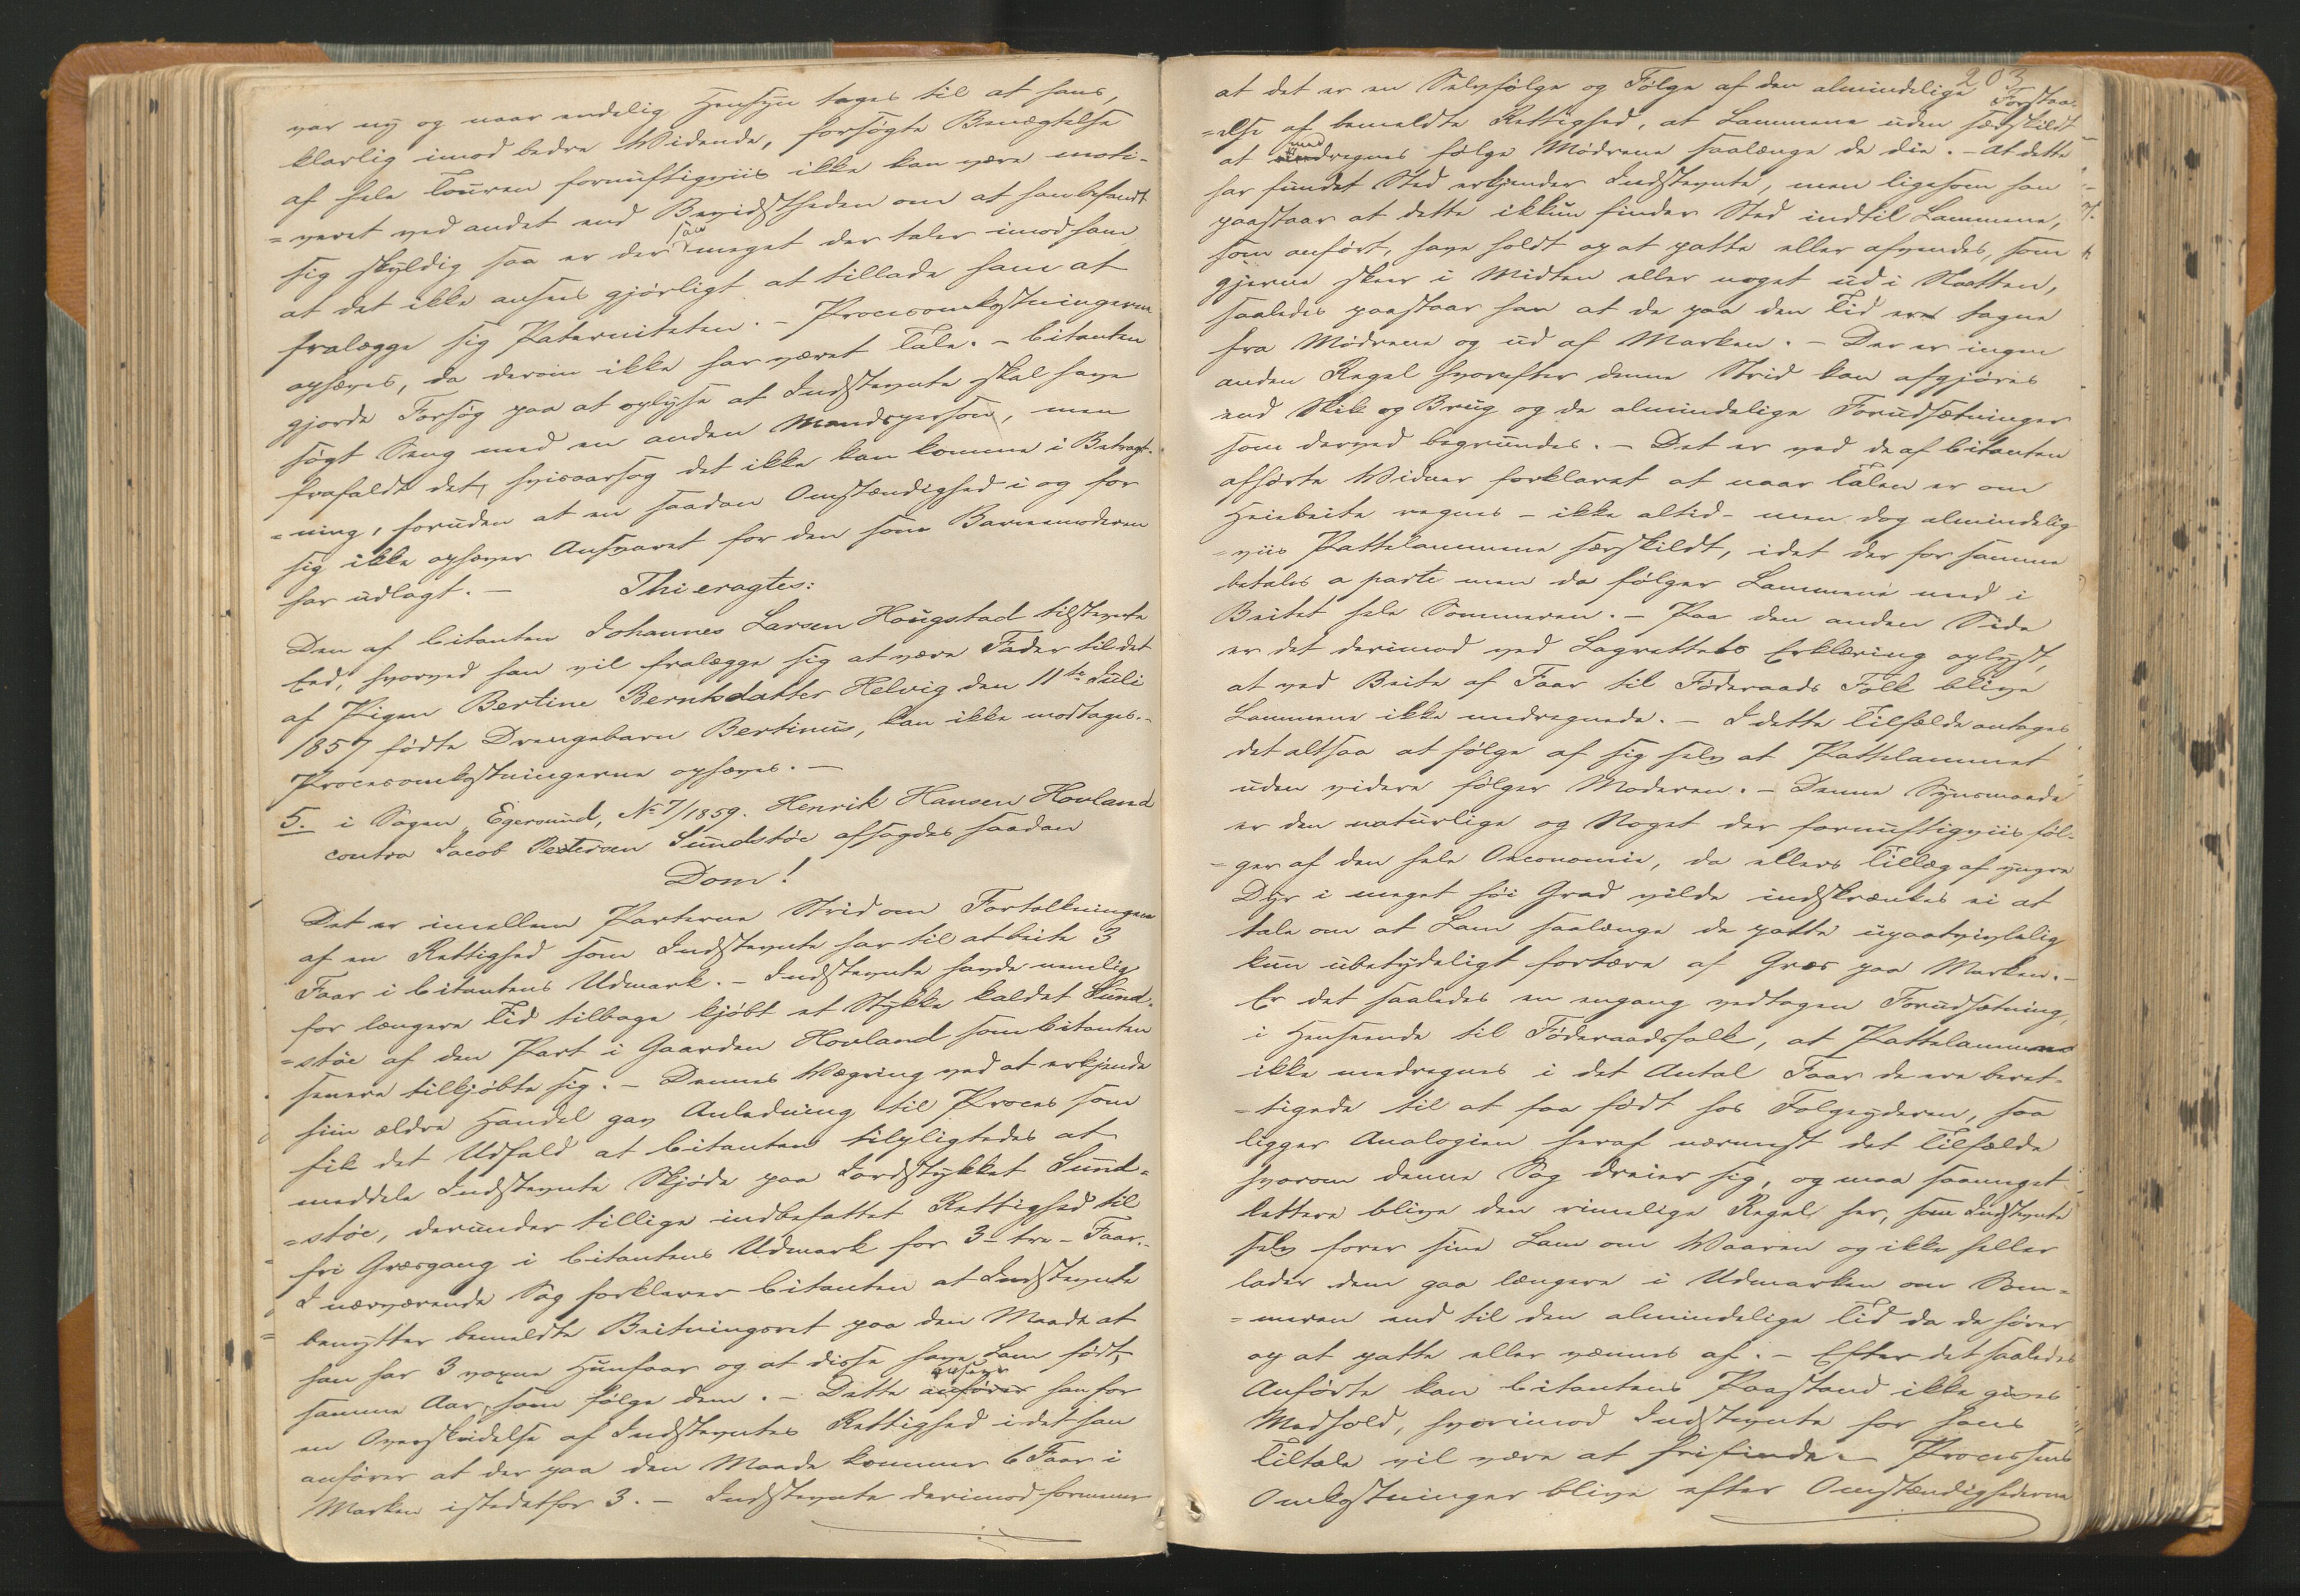 var ny og naar endelig Hensyn tages til at hans,
klarlig imod bedre Vidende, forsøgte Benægtelse
af hele Touren fornuftigviis ikke kan være moti-
=veret ved andet end Bevidstheden om at han befandt
sig skyldig saa er der saa meget der taler imod ham
at det ikke ansees gjørligt at tillade ham at
fralægge sig Paterniteten. – Procesomkostningerne
ophæves, da derom ikke har været Tale. – Citanten
gjorde Forsøg paa at oplyse at Indstevnte skal have
søgt Seng med en anden Mandsperson, men
frafaldt det, hvisaarsag det ikke kan komme i Betragt-
=ning, foruden at en saadan Omstændighed i og for
sig ikke ophæver Ansvaret for den som Barnemoderen
har udlagt. – Thi eragtes:
Den af Citanten Johannes Larsen Hougstad tilstevnte
Eed, hvorved han vil fralægge sig at være Fader til det
af Pigen Bertine Berntsdatter Helvig den 11te Juli
1857 fødte Drengebarn Bertinus, kan ikke modtages. –
Procesomkostningerne ophæves. –
5. i Sagen, Egersund, No 7/1859. Henrik Hansen Hovland
contra Jacob Petersen Sundstøe afsagdes saadan
Dom!
Det er imellem Parterne Strid om Fortolkningen
af en Rettighed som Indstevnte har til at beite 3
Faar i Citantens Udmark. – Indstevnte havde nemlig
for længere Tid tilbage kjøbt et Stykke kaldet Sund-
=støe af den Part i Gaarden Hovland som Citanten
senere tilkjøbte sig. – Dennes Vægring ved at erkjende
hiin ældre Handel gav Anledning til Proces som
fik det Udfald at Citanten tilpligtedes at
meddele Indstevnte Skjøde paa Jordstykket Sund=
=støe, derunder tillige indbefattet Rettighed til
fri Græsgang i Citantens Udmark for 3 – tre – Faar. –
I nærværende Sag forklarer Citanten at Indstevnte
benytter bemeldte Beitningsret paa den Maade at
han har 3 voxne Hunfaar og at disse have Lam født
samme Aar, som følge dem. – Dette anseer han for
en Overskridelse af Indstevntes Rettighed idet han
anfører at der paa den Maade kommer 6 Faar i
Marken istedetfor 3. – Indstevnte derimod formener
203
at det er en Selvfølge og Følge af den almindelige Forstaa-
=else af bemeldte Rettighed, at Lammene uden særskildt
at medregnes følge Mødrene saalænge de die. – At dette
har fundet Sted erkjender Indstevnte, men ligesom han
paastaar at dette ikkun finder Sted indtil Lammene,
som anført, have holdt op at patte eller afvendes, som
gjerne skeer i Midten eller noget ud i Høsten,
saaledes paastaar han at de paa den Tid ere tagne
fra Mødrene og ud af Marken. – Der er ingen
anden Regel hvorefter denne Strid kan afgjøres
end Skik og Brug og de almindelige Forudsætninger
som derved begrundes. – Det er ved de af Citanten
afhørte Vidner forklaret at naar Talen er om
Heiebeite regnes – ikke altid – men dog almindelig-
=viis Pattelammene særskildt, idet der for samme
betales a parte men da følger Lammene med i
Beitet hele Sommeren. – Paa den anden Side
er det derimod ved Lagrettets Erklæring oplyst,
at ved Beite af Faar til Føderaads Folk blive
Lammene ikke medregnede. – I dette Tilfælde antages
det altsaa at følge af sig selv at Pattelammet
uden videre følger Moderen. – Denne Synsmaade
er den naturlige og Noget der fornuftigviis føl-
=ger af den hele Oeconomie, da ellers Tillæg af yngre
Dyr i meget høi Grad vilde indskrænkes ei at
tale om at Lam saalænge de patte upaatvivlelig
kun ubetydeligt fortære af Græs paa Marken. –
Er det saaledes en engang vedtagen Forudsætning,
i Henseende til Føderaadsfolk, at Pattelammene
ikke medregnes i det Antal Faar de ere beret-
=tigede til at faa født hos Folgeyderen, saa
ligger Analogien heraf nærmest det Tilfælde
hvorom denne Sag dreier sig, og maa saameget
lettere blive den rimelige Regel her, som Indstevnte
selv forer sine Lam om Vaaren og ikke heller
lader dem gaa længere i Udmarken om Som-
=meren end til den almindelige Tid da de hører
op at patte eller vænnes af. – Efter det saaledes
Anførte kan Citantens Paastand ikke gives
Medhold, hvorimod Indstevnte for hans
Tiltale vil være at frifinde. – Processens
Omkostninger blive efter Omstændighederne